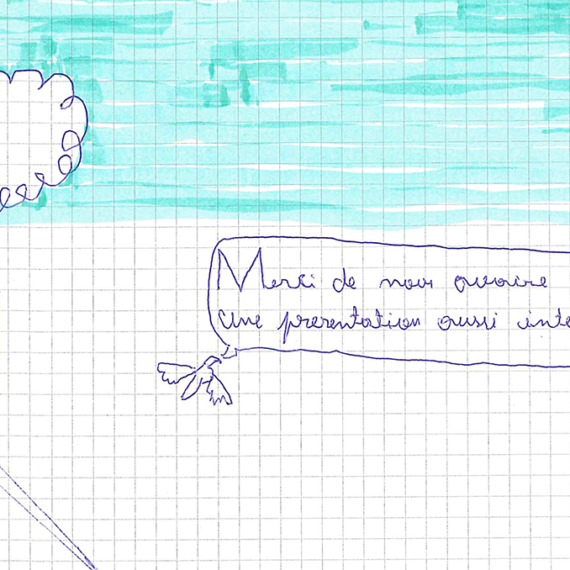 Merci de nous avoire
une presentation aussi inte